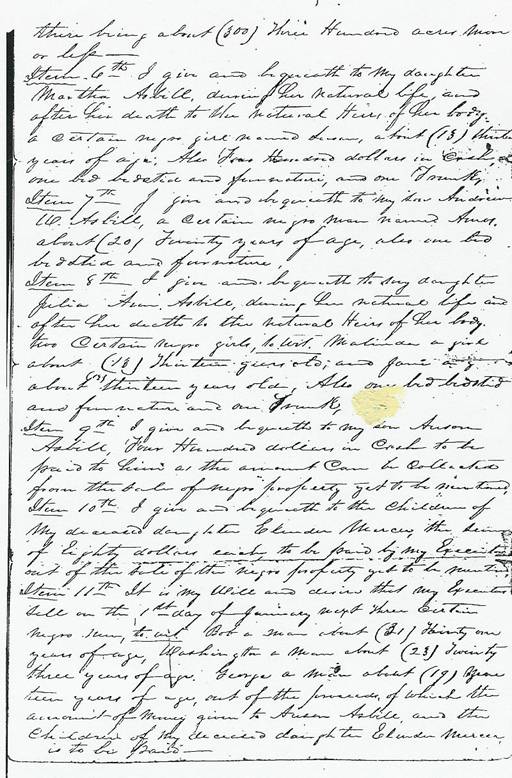 there being about (300) Three Hundred acres more
or less—
Item 6th I give and bequeath to my daughter
Martha Asbill, during her natural life, and
after her death to the natural Heirs of her body.
a certain negro girl named Susan, about (13) thirteen
years of age. Also Four Hundred dollars in Cash,
one bed bedstid and furnature, and one Trunk,
Item 7th I give and bequeath to my son Andrew
W. Asbill, a certain negro man named Amos.
about (20) Twenty years of age, also one bed
bedstid and furnature,
Item 8th I give and bequeath to my daughter
Julia Ann Asbill, during her natural life and
after her death to the natural Heirs of her body.
two Certain negro girls, to wit. Malinda a girl
about (13) Thirteen years old, and Jane a
about thirteen years old, Also one bed bedstid
and furnature and one Trunk,
Item 9th I give and bequeath to my son Anson
Asbill, Four Hundred dollars in Cash to be
paid to him as the amount Can be Collected
from the sale of negro property yet to be mentioned,
Item 10th. I give and bequeath to the Children of
My deceased daughter Elender Mercer, the sum
of Eighty dollars each to be paid by my Executor
out of the sale of the negro property yet to be
Item 11th It is my Will and desire that my Executor
sell on the 1st day of January next three Certain
negro men, to wit Bob a man about (31) Thirty one
years of age, Washington a man about (23) Twenty
three years of age. George a man about (19) Nine
teen years of age, out of the proceeds, of which the
account of Money given to Anson Asbill, and the
Children of My deceased daughter Elender Mercer,
is to be Paid—